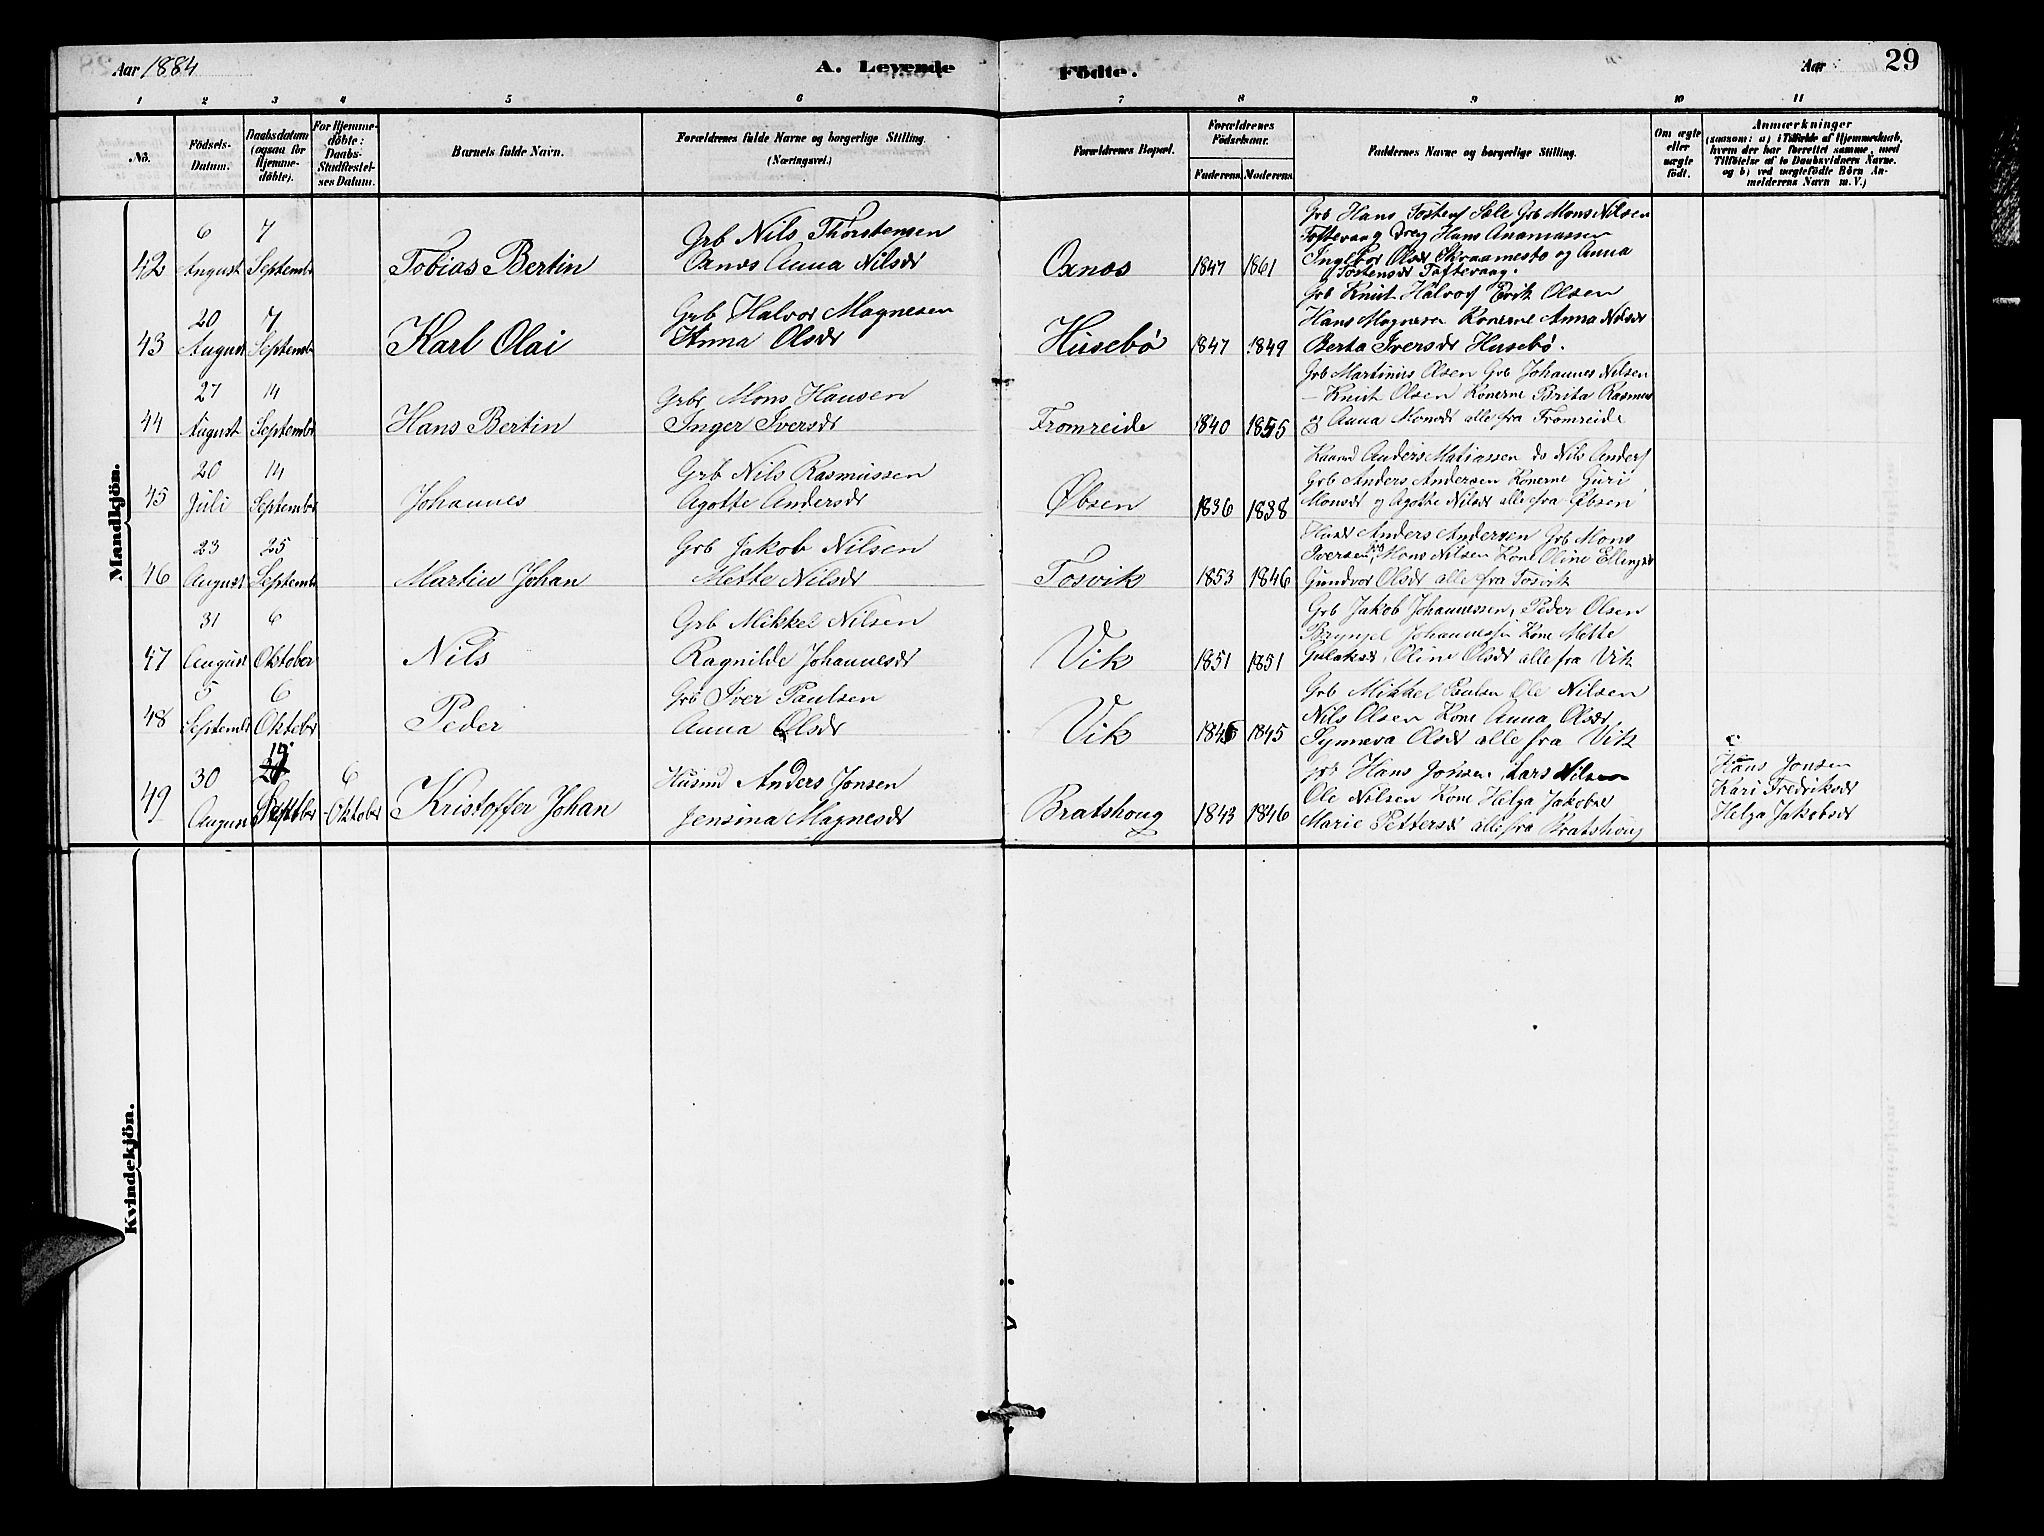 Aar 1884
A. Levende
Födte.
Aar
29
1 2 3 4 5 6 7 8 9 10 11
No.
Födsels-
Datum.
Daabsdatum
(ogsaa for
Hjemme-
döbte).
For Hjemme-
döbte:
Daabs-
Stadfæstel-
ses Datum.
Barnets fulde Navn.
Forældrenes fulde Navne og borgerlige Stilling.
(Næringsvei.)
Forældrenes Bopæl.
Forældrenes
Födselsaar.
Faderens. Moderens.
Faddernes Navne og borgerlige Stilling.
Om ægte
eller
uægte
födt.
Anmærkninger
(saasom: a) i Tilfælde af Hjemmedaab,
hvem der har forrettet samme, med
Tilföielse af to Daabsvidners Navne.
og b) ved uægtefödte Börn An-
melderens Navn m. V.)
Mandkjön.
42
6
August
7
Septembr
Tobias Bertin
Grb Nils Thorstensen
Oxnæs Anna Nilsdr
Oxnæs
1847 1861
Grb Hans Tostens Sæle Grb Mons Nilsen
Toftevaag Dreng Hans Ananiassen
Ingebor Olsdr Skraamestø og Anna
Tostensdr Toftevaag.
43
20
August
7
Septembr
Karl Olai
Grb Halvor Magnesen
Anna Olsdr
Husebö
1847 1849
Grb Knut Halvors Erik Olsen
Hans Magnesen Konerne Anna Nilsdr
Berta Iversdr Husebö.
44
27
August
14
Septembr
Hans Bertin
Grbr Mons Hansen
Inger Iversdr
Fromreide
1840 1855
Grb Martinius Olsen Grb Johannes Nilsen
– Knut Olsen Konerne Brita Rasmus
og Anna Monsdr alle fra Fromreide
45
20
Juli
14
Septembr
Johannes
Grb Nils Rasmussen
Agotte Andersdr
Øbsen
1836 1838
Kaarmd Anders Matiassen do Nils Anders
Grb Anders Andersen Konerne Guri
Monsdr og Agotte Nilsdr alle fra Øbsen
46
23
August
25
Septembr
Martin Johan
Grb Jakob Nilsen
Mette Nilsdr
Tosvik
1853 1846
Anders Andersen Grb Mons
Iversen Mons Nilsen Kone Oline Ellingsdr
Gundvor Olsdr alle fra Tosvik
47
31
August
6
Oktober
Nils
Grb Mikkel Nilsen
Ragnilde Johannesdr
Vik
1851 1851
Grb Jakob Johannessen, Peder Olsen
Brynjel Johannessen Kone Mette
Gulaksdr, Oline Olsdr alle fra Vik
48
5
Septembr
6
Oktober
Peder
Grb Iver Paulsen
Anna Olsdr
Vik
1845 1845
Grb Mikkel Paulsen Ole Nilsen
Nils Olsen Kone Anna Olsdr
Synneva Olsdr alle fra Vik
49
30
August
19
Septbr
6
Oktober
Kristoffer Johan
Husmd Anders Jonsen
Jensina Magnesdr
Bratshoug
1843 1846
Hans Jonsen, Lars Nilsen
Ole Nilsen Kone Helga Jakobsdr
Marie Pettersdr alle fra Bratshoug
Hans Jonsen
Kari Fredriksdr
Helga Jakobsdr
Kvindekjön.